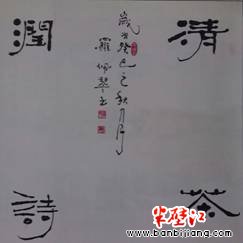 清茶
潤詩
歲次癸巳之秋月
羅
半壁江
www.banbijiang.com